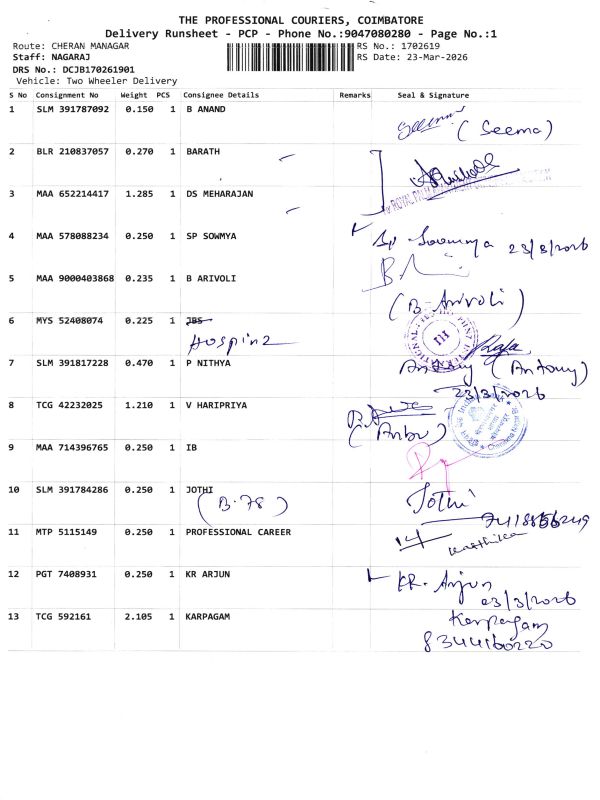 THE PROFESSIONAL COURIERS, COIMBATORE
Delivery Runsheet - PCP - Phone No.:9047080280 - Page No.:1
Route: CHERAN MANAGAR RS No.: 1702619
Staff: NAGARAJ RS Date: 23-Mar-2026
DRS No.: DCJB170261901
Vehicle: Two Wheeler Delivery
S No Consignment No Weight PCS Consignee Details Remarks Seal & Signature
1 SLM 391787092 0.150 1 B ANAND
(Seema)
2 BLR 210837057 0.270 1 BARATH
3 MAA 652214417 1.285 1 DS MEHARAJAN
4 MAA 578088234 0.250 1 SP SOWMYA
Sp Sowmya 23/3/2026
5 MAA 9000403868 0.235 1 B ARIVOLI
(B. Arivoli)
6 MYS 52408074 0.225 1 JBS
7 SLM 391817228 0.470 1 P NITHYA
Antony (Antony)
23/3/2026
8 TCG 42232025 1.210 1 V HARIPRIYA
(Anbu)
9 MAA 714396765 0.250 1 IB
10 SLM 391784286 0.250 1 JOTHI
(B.78) Jothi
11 MTP 5115149 0.250 1 PROFESSIONAL CAREER
Karthika
12 PGT 7408931 0.250 1 KR ARJUN
KR. Arjun
23/3/2026
13 TCG 592161 2.105 1 KARPAGAM
Karpagam
8344160220